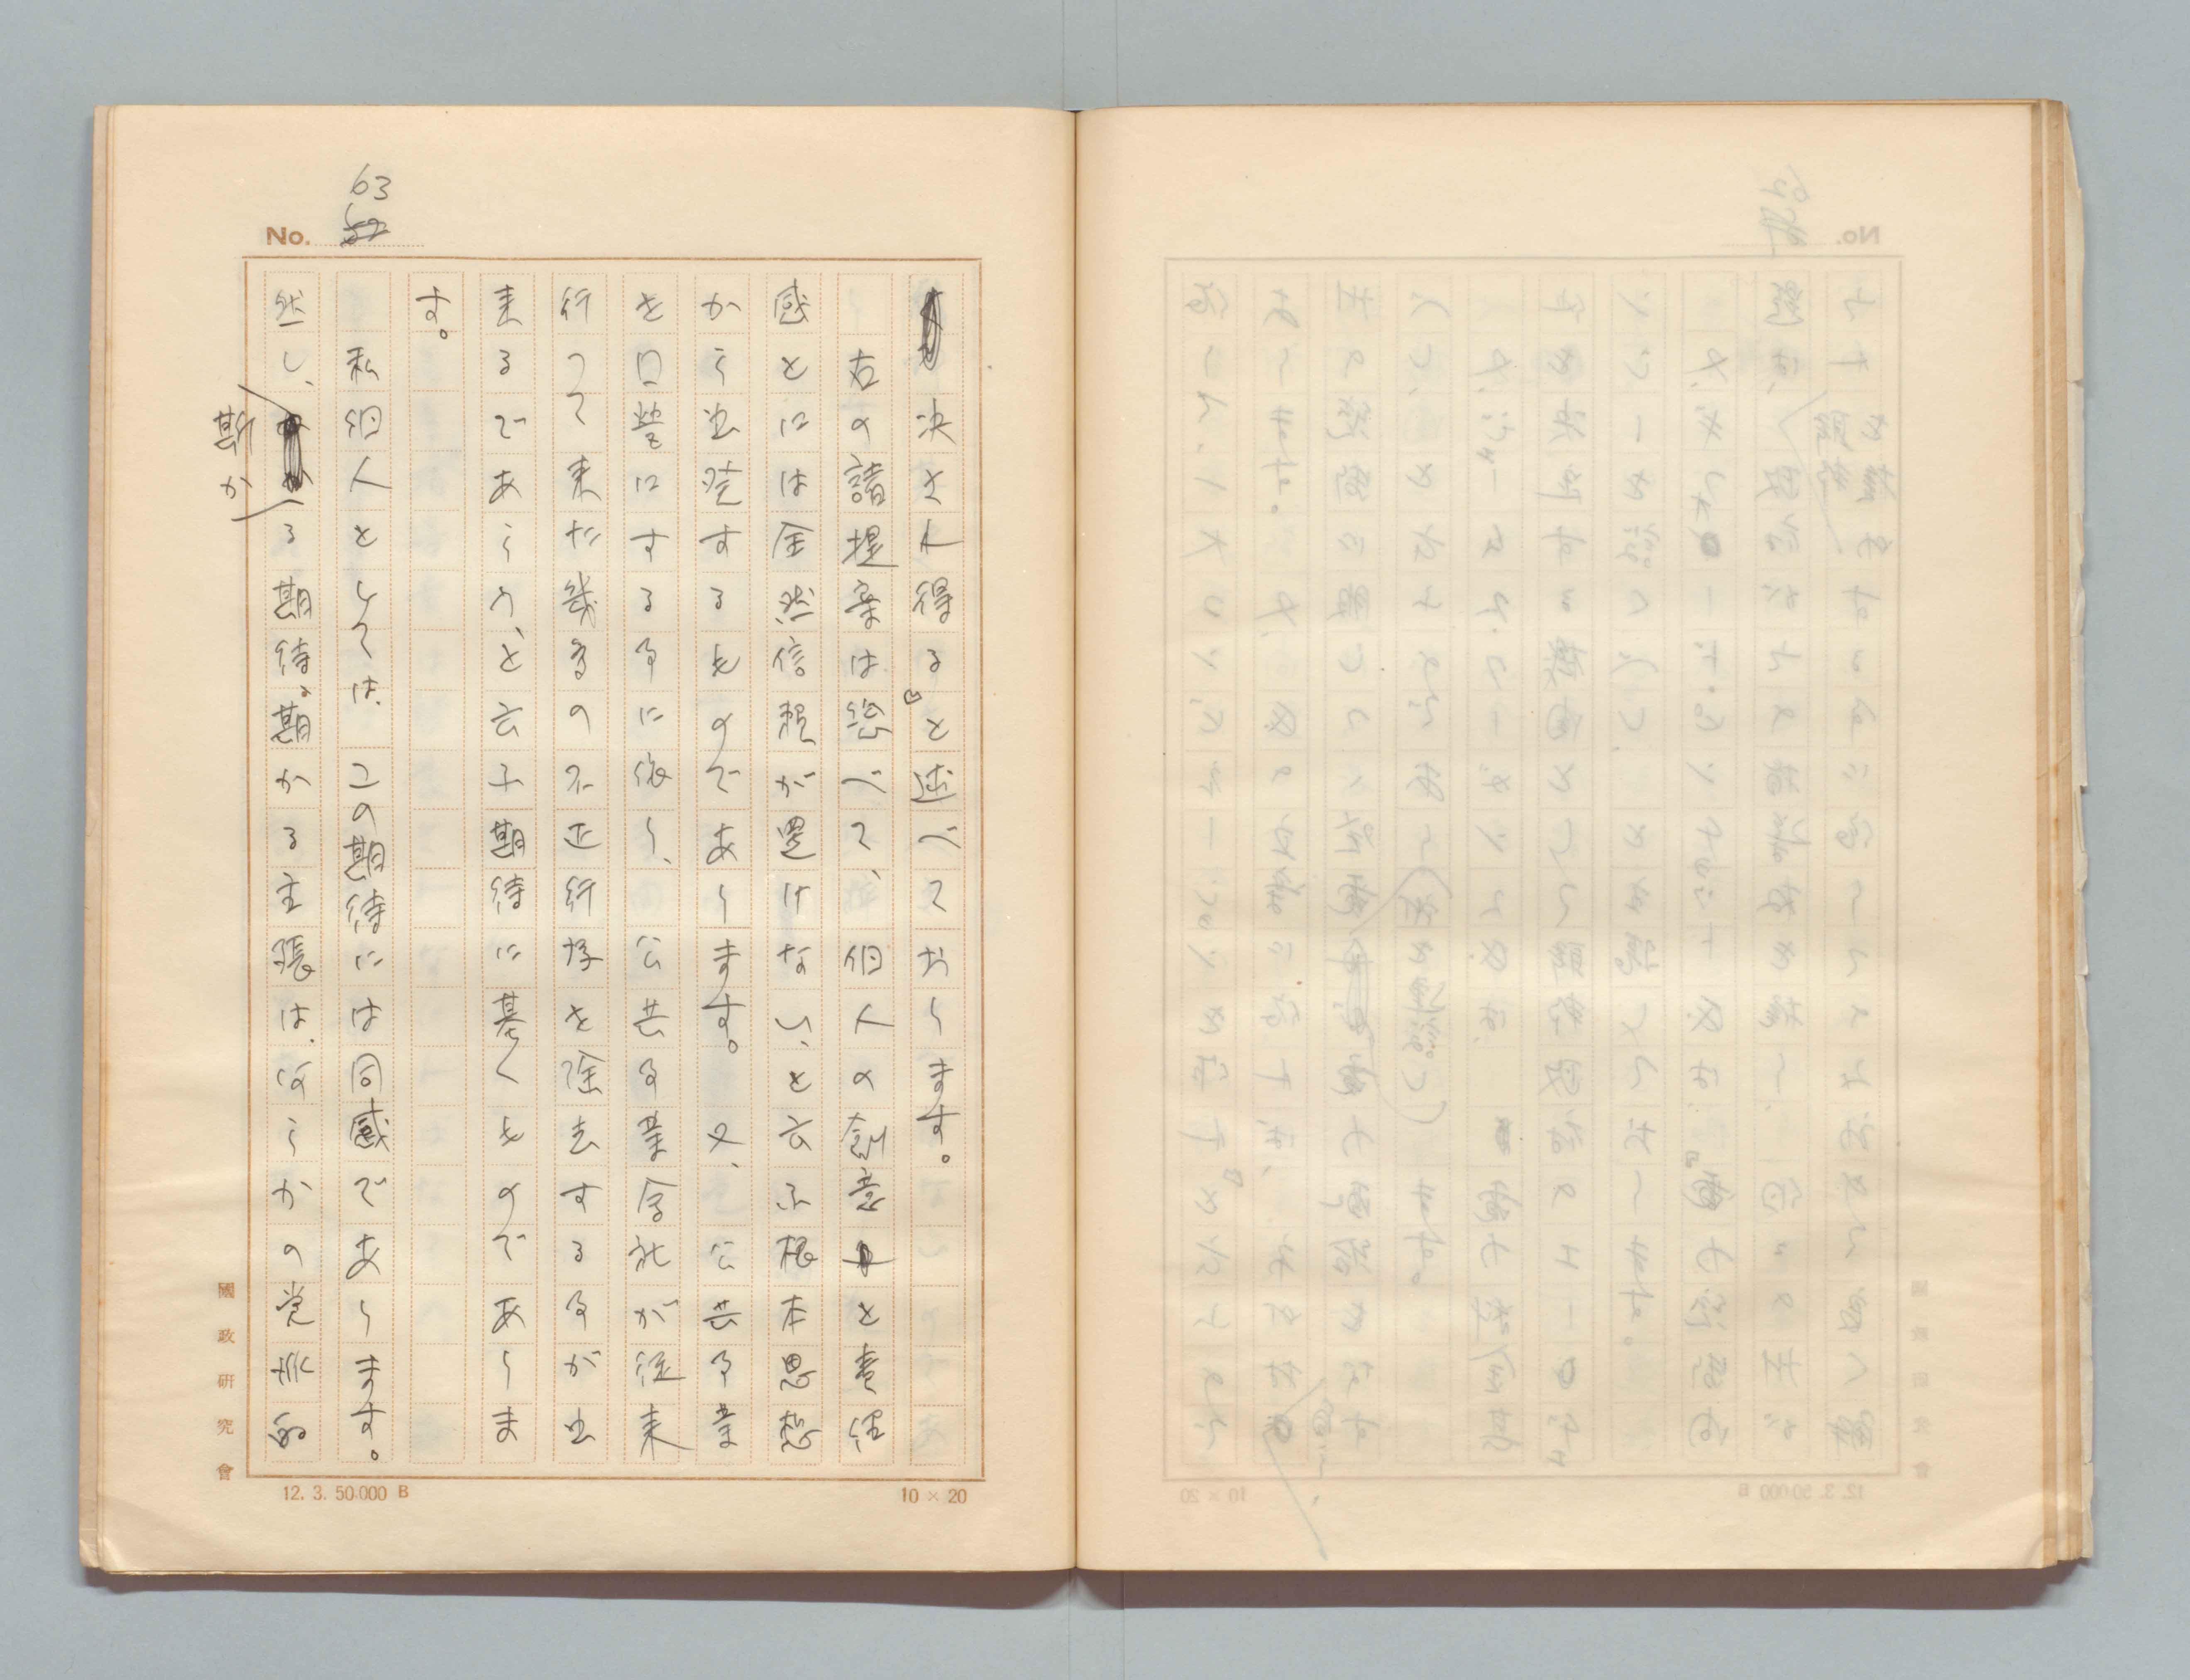 63
No.
決され得る』と述べております。
右の諸提案は総べて、個人の創意と責任
感とには全然信頼が置けない、と云ふ根本思想
から出発するものであります。又、公共事業
を国営にする事に依り、公共事業会社が従来
行つて来た幾多の不正行為を除去する事が出
来るであらう、と云ふ期待に基くものでありま
す。
私個人としては、この期待には同感であります。
然し、斯かる期待。期かる主張は、何らかの党派的
國政研究會
12. 3. 50.000 B
10 × 20